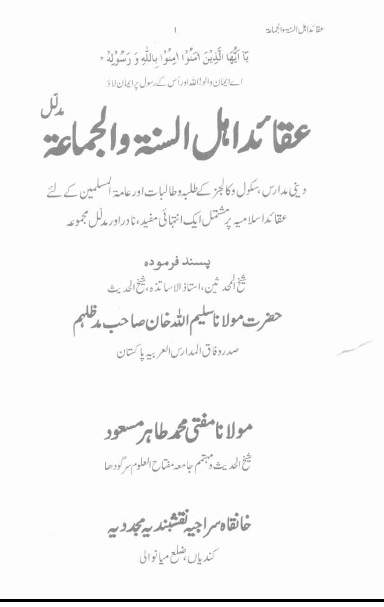 عقائد اہل السنۃ والجماعۃ
۱
يَا اَيُّهَا الَّذِيْنَ اٰمَنُوْا اٰمِنُوْا بِاللّٰهِ وَ رَسُوْلِهٖ
اے ایمان والو! اللہ اور اُس کے رسول پر ایمان لاؤ
مدلّل
عقائد اہل السنۃ والجماعۃ
دینی مدارس، سکول و کالجز کے طلبہ و طالبات اور عامۃ المسلمین کے لئے
عقائد اسلامیہ پر مشتمل ایک انتہائی مفید، نادر اور مدلّل مجموعہ
پسند فرمودہ
شیخ المحدثین، استاذ الاساتذہ، شیخ الحدیث
حضرت مولانا سلیم اللہ خان صاحب مدظلہم
صدر وفاق المدارس العربیہ پاکستان
مولانا مفتی محمد طاہر مسعود
شیخ الحدیث و مہتمم جامعہ مفتاح العلوم سرگودھا
خانقاہ سراجیہ نقشبندیہ مجددیہ
کندیاں، ضلع میانوالی